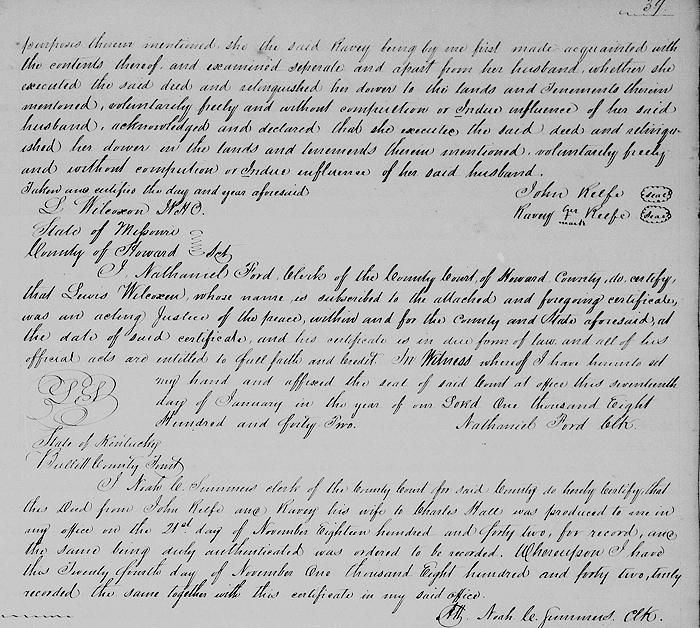 39
purposes therein mentioned, she the said Kavey being by me first made acquainted with
the contents thereof, and examined seperate and apart from her husband, whether she
executed the said deed and relinquished her dower to the lands and Tenements therein
mentioned, voluntarily freely and without compulsion or Indue influence of her said
husband, acknowledged and declared that she executed the said deed and relinqu-
ished her dower in the lands and tenements therein mentioned, voluntarily freely
and without compution or Indue influence of her said husband.
Taken and certifies the day and year aforesaid
John Kelfe (seal)
L Wilcoxon
Kavey her X mark Keefe (seal)
State of Missouri
County of Howard Sct
I, Nathaniel Ford, Clerk of the County Court, of Howard County, do certify,
that Lewis Wilcoxen, whose name is subscribed to the attached and foregoing certificate,
was an acting Justice of the peace, within and for the County and State aforesaid, at
the date of said certificate, and his certificate is in due form of law, and all of his
official acts are entitled to full faith and Credit. In Witness whereof I have hereunto set
my hand and affixed the seal of said Court at office this seventeenth
day of January in the year of our Lord One thousand Eight
Hundred and forty Two. Nathaniel Ford Clk.
State of Kentucky
Bullitt County Sct
I Noah C. Summers clerk of the County Court for said County do hereby Certify, that
this Deed from John Kelfe and Kavey his wife to Charles Hall was produced to me in
my office on the 21st day of November Eighteen hundred and forty two, for record, and
the same being duly authenticated was ordered to be recorded. Whereupon I have
this Twenty fourth day of November One thousand Eight hundred and forty two, truly
recorded the same together with this certificate in my said office.
Att. Noah C. Summers. Clk.